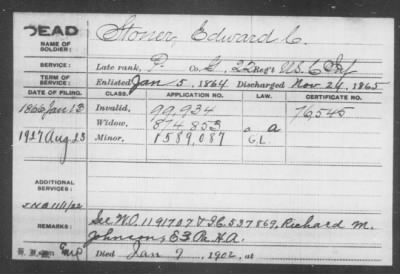 DEAD
NAME OF SOLDIER: Stoner, Edward C.
SERVICE: Late rank, P. Co. G, 22 Reg't U.S.C. Inf
TERM OF SERVICE: Enlisted Jan 5, 1864 Discharged Nov. 24, 1865
DATE OF FILING. CLASS. APPLICATION NO. LAW. CERTIFICATE NO.
1866 Jan 13 Invalid, 99,934 76,545
Widow, 874,853 a
1927 Aug 23 Minor, 1589,087 G.L.
ADDITIONAL SERVICES:
REMARKS: See W.O. 1191727 & I.C. 537869, Richard M.
Johnson, E 3 Pa. H.A.
Died Jan 9, 1902, at